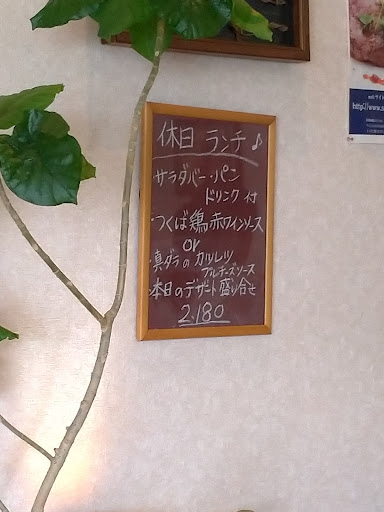 休日 ランチ♪
サラダバー・パン
ドリンク付
・つくば鶏赤ワインソース
or
・真ダラのカツレツ
ブルーチーズソース
・本日のデザート盛り合せ
2.180
webサイト
http://www.s